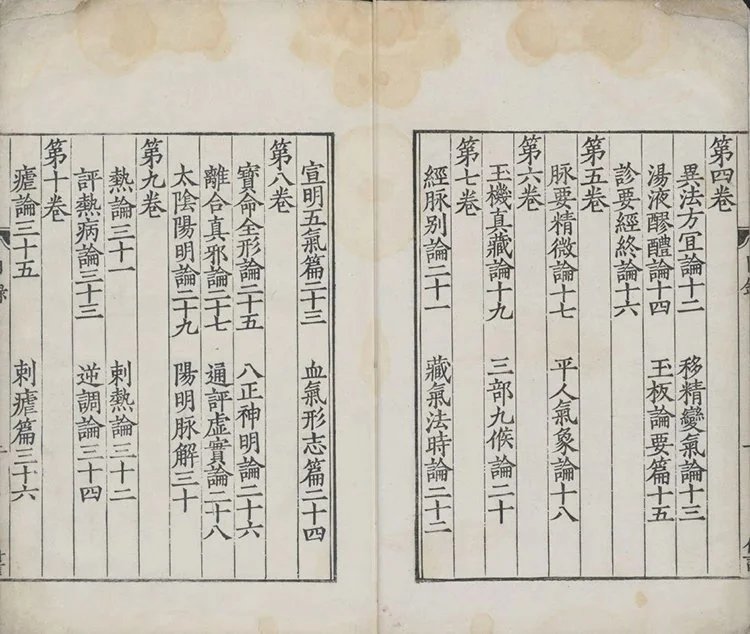 第四卷
異法方宜論十二　移精變氣論十三
湯液醪醴論十四　玉板論要篇十五
診要經終論十六
第五卷
脉要精微論十七　平人氣象論十八
第六卷
玉機真藏論十九　三部九候論二十
第七卷
經脉別論二十一　藏氣法時論二十二
宣明五氣篇二十三　血氣形志篇二十四
第八卷
寶命全形論二十五　八正神明論二十六
離合真邪論二十七　通評虛實論二十八
太陰陽明論二十九　陽明脉解三十
第九卷
熱論三十一　刺熱論三十二
評熱病論三十三　逆調論三十四
第十卷
瘧論三十五　刺瘧篇三十六